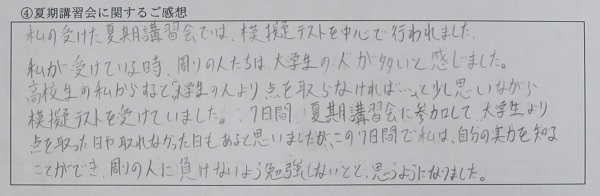 ④夏期講習会に関するご感想
私の受けた夏期講習会では、模擬テストを中心で行われました。
私が受けている時、周りの人たちは、大学生の人が多いと感じました。
高校生の私からすると大学生の人より点を取らなければ…と少し思いながら
模擬テストを受けていました。7日間、夏期講習会に参加して、大学生より
点を取った日や取れなかった日もあると思いましたが、この7日間で私は、自分の実力を知る
ことができ、周りの人に負けないよう勉強しないとと、思うようになりました。